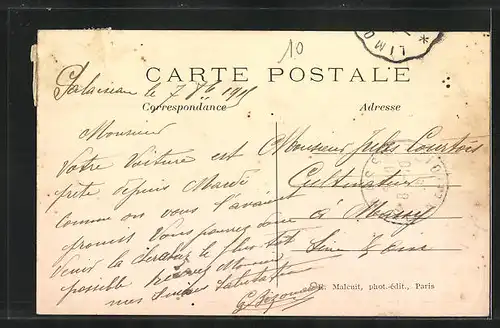 10
LIMO
CARTE POSTALE
Correspondance
Adresse
Palaiseau le 7
Monsieur
Votre Voiture est
prête depuis Mardi
comme on vous l'avait
promis Vous pouvez donc
venir la chercher le plus tôt
possible Recevez Monsieur
mes Salutations
Monsieur Jules Courtois
Cultivateur
à Massy
Seine & Oise
R. Malcuit, phot.-édit., Paris